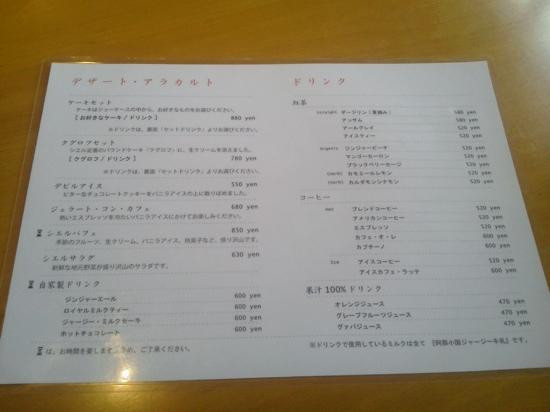 デザート・アラカルト
ケーキセット
ケーキはショーケースの中から、お好きなものをお選びください。
[ お好きなケーキ / ドリンク ] 880 yen
※ドリンクは、裏面「セットドリンク」よりお選びください。
クグロフセット
シエル定番のパウンドケーキ「クグロフ」に、生クリームを添えました。
[ クグロフ / ドリンク ] 780 yen
※ドリンクは、裏面「セットドリンク」よりお選びください。
デビルアイス 550 yen
ビターなチョコレートクッキーをバニラアイスの上に散りばめました。
ジェラート・コン・カフェ 680 yen
熱いエスプレッソを冷たいバニラアイスにかけてお楽しみください。
シエルパフェ 850 yen
季節のフルーツ、生クリーム、バニラアイス、焼菓子など、盛り沢山です。
シエルサラダ 630 yen
新鮮な地元野菜が盛り沢山のサラダです。
自家製ドリンク
ジンジャーエール 600 yen
ロイヤルミルクティー 600 yen
ジャージー・ミルクセーキ 600 yen
ホットチョコレート 600 yen
は、お時間を要しますため、ご了承ください。
ドリンク
紅茶
straight ダージリン(夏摘み) 580 yen
アッサム 580 yen
アールグレイ 520 yen
アイスティー 520 yen
ジンジャーピーチ 520 yen
マンゴーセーロン 520 yen
ブラックベリーセージ 520 yen
(herb) カモミールレモン 520 yen
(herb) カルダモンシナモン 520 yen
コーヒー
Hot ブレンドコーヒー 520 yen
アメリカンコーヒー 520 yen
エスプレッソ 520 yen
カフェ・オ・レ 600 yen
カプチーノ 600 yen
Ice アイスコーヒー 520 yen
アイスカフェ・ラッテ 600 yen
果汁 100%ドリンク
オレンジジュース 470 yen
グレープフルーツジュース 470 yen
グァバジュース 470 yen
※ドリンクで使用しているミルクは全て 『阿蘇小国ジャージー牛乳』です。